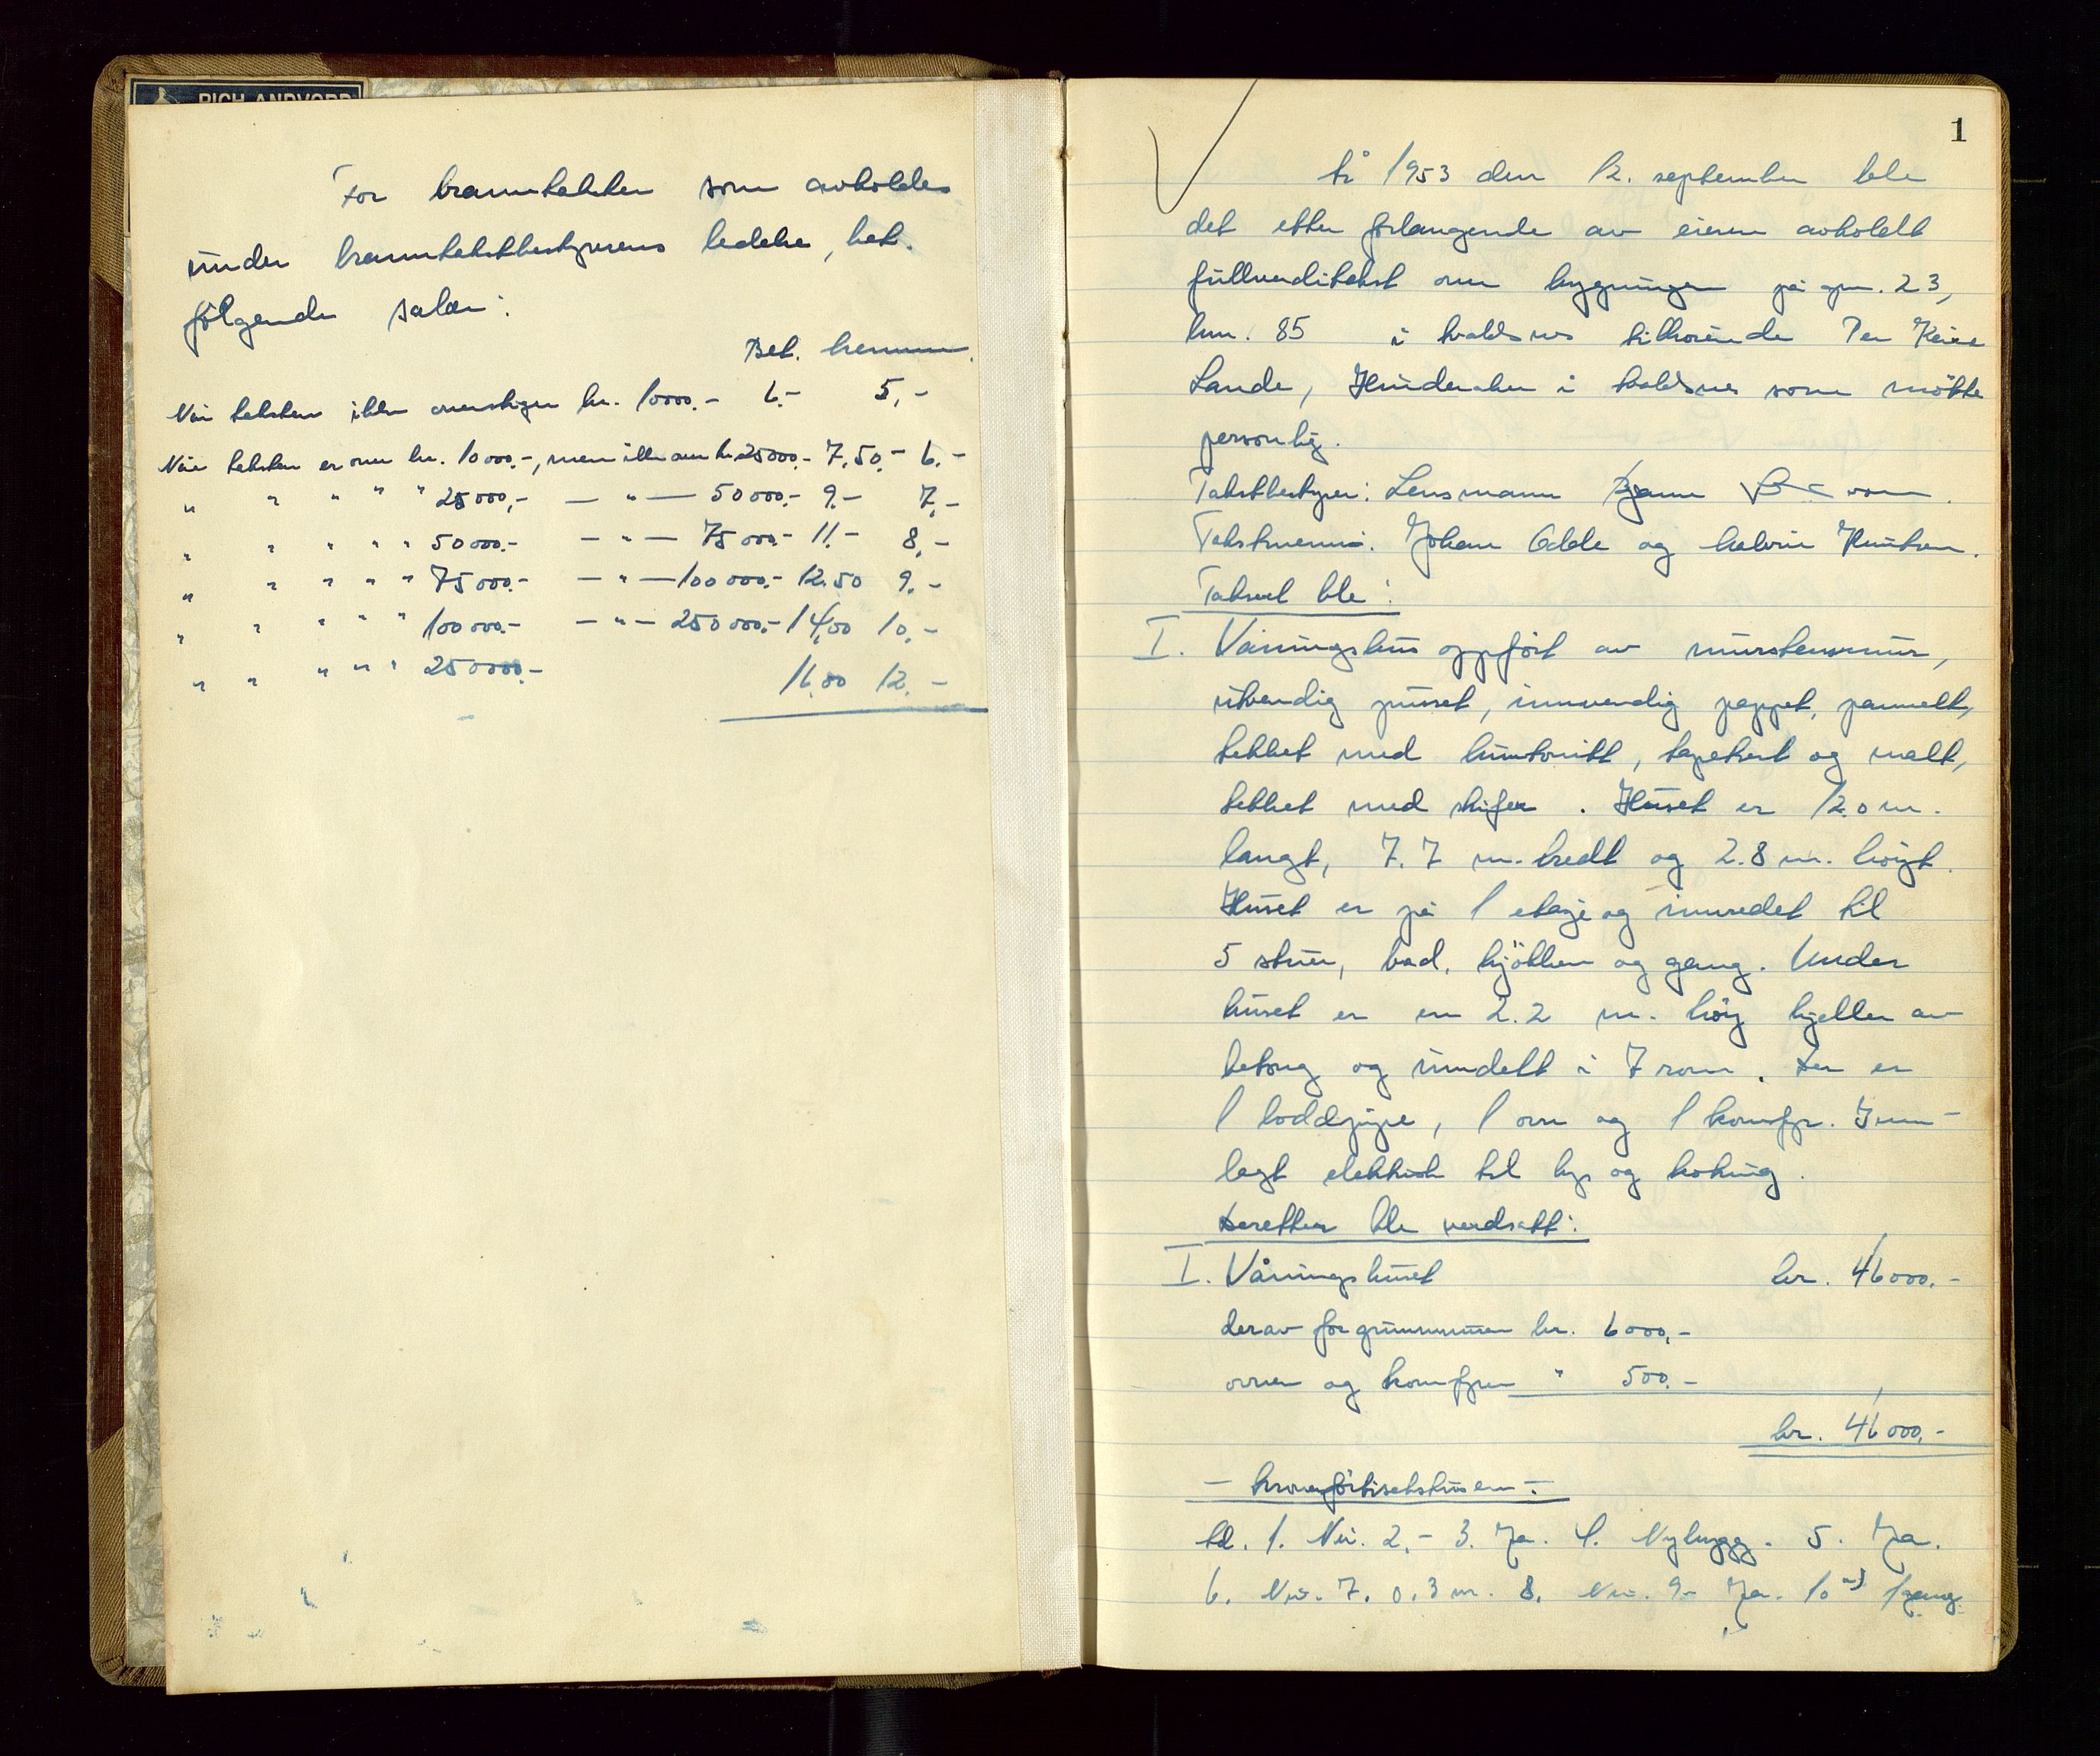 RICH. ANDVORD
For branntakster som avholdes
under branntakstbestyrerens ledelse, bet.
følgende salær:
Best. mennene.
Når taksten ikke overstiger kr. 10000.- 6.- 5,-
Når taksten er over kr. 10000.-, men ikke over kr. 25000.- 7.50.- 6.-
" " " " " 25000,- — " — 50000.- 9.- 7.-
" " " " " 50000.- — " — 75000.- 11.- 8,-
" " " " " 75000.- — " — 100000.- 12.50 9.-
" " " " " 100000.- — " — 250000.- 14,00 10.-
" " " " " 250000.- 16.00 12.-
1
År 1953 den 12. september ble
det etter forlangende av eieren avholdt
fullverditakst over bygningen på gnr. 23,
bnr. 85 i tilhørende Per
Lande, i som møtte
personlig.
Takstbestyrer: Lensmann
Takstmenn: Johan Odde og
Taksert ble:
I. Våningshus oppført av murstensmur,
utvendig pusset, innvendig pappet, panelt,
tekket med huntonitt, tapetsert og malt,
tekket med skifer. Huset er 12.0 m.
langt, 7.7 m. bredt og 2.8 m. høigt.
Huset er på 1 etasje og innredet til
5 stuer, bad, kjøkken og gang. Under
huset er en 2.2 m. høy kjeller av
betong og inndelt i 7 rom. Der er
1 loddpipe, 1 ovn og 1 komfyr. Inn-
lagt elektrisk til lys og koking.
Deretter ble verdsatt:
I. Våningshuset kr. 46000.-
derav for grunnmuren kr. 6000,-
ovnen og komfyren " 500.-
kr. 46000.-
-
1. Nei. 2.- 3. Ja. 4. Nybygg. 5. Ja.
6. Nei. 7. 0.3 m. 8. Nei. 9.- Ja. 10 a) 1 gang